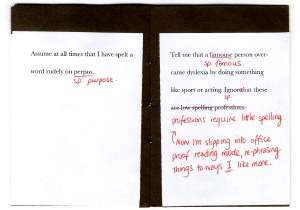 Assume at all times that I have spelt a
word rudely on perpos.
sp purpose.
Tell me that a famouse person over-
sp famous.
came dyslexia by doing something
like sport or acting. Ignor that these
sp.
are low spelling professions.
professions require little spelling.
Now I'm slipping into office
proof reading mode, re-phrasing
things to ways I like more.